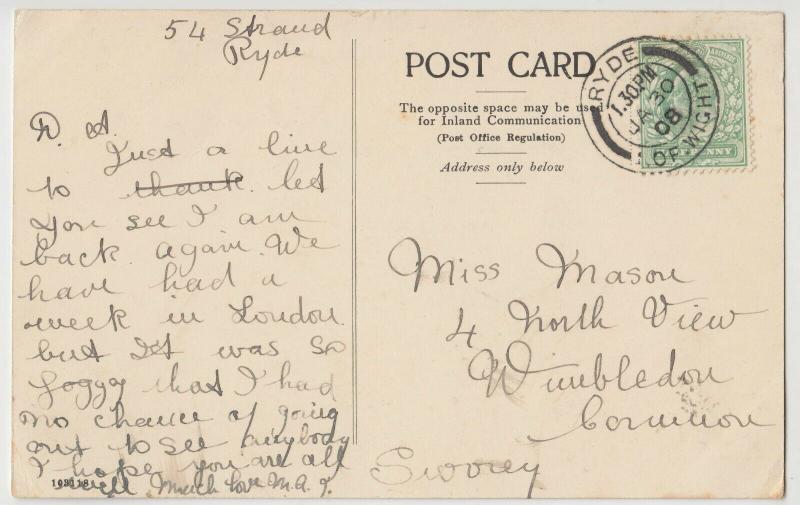 54 Strand
Ryde
D. A.
Just a line
to thank. let
you see I am
back. again. We
have had a
week in London.
but It was so
foggy that I had
no chance of going
out to see anybody
I hope you are all
well. Much love M.A.
103118
POST CARD
The opposite space may be used
for Inland Communication
(Post Office Regulation)
Address only below
RYDE
1.30.PM
JA 30
08
I. OF WIGHT
PENNY
Miss Mason
4 North View
Wimbledon
Common
Surrey